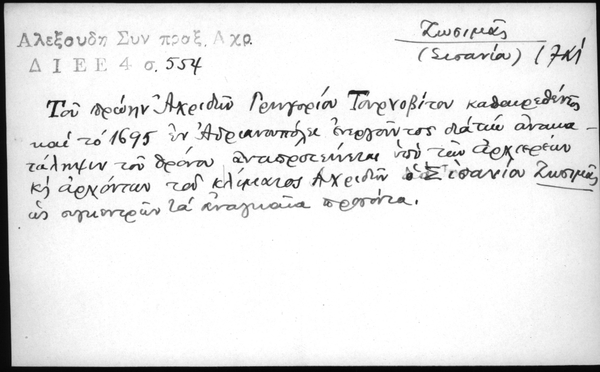 Αλεξουδη Συν πραξ. Αχρ.
Δ Ι Ε Ε 4 σ. 554
Ζωσιμᾶς
(Σισανίου) (7κ)
Τοῦ πρώην Ἀχριδῶν Γρηγορίου Τουρνοβίτου καθαιρεθέντος
καί τό 1695 ἐν Ἀδριανουπόλει ἐνεργοῦντος διά τήν ἀνακα-
τάληψιν τοῦ θρόνου ἀντιπροτείνεται ὑπό τῶν ἀρχιερέων
κ ἀρχόντων τοῦ κλίματος Ἀχριδῶν ὁ Σισανίου Ζωσιμᾶς
ὡς συγκεντρῶν τά ἀναγκαῖα προσόντα.